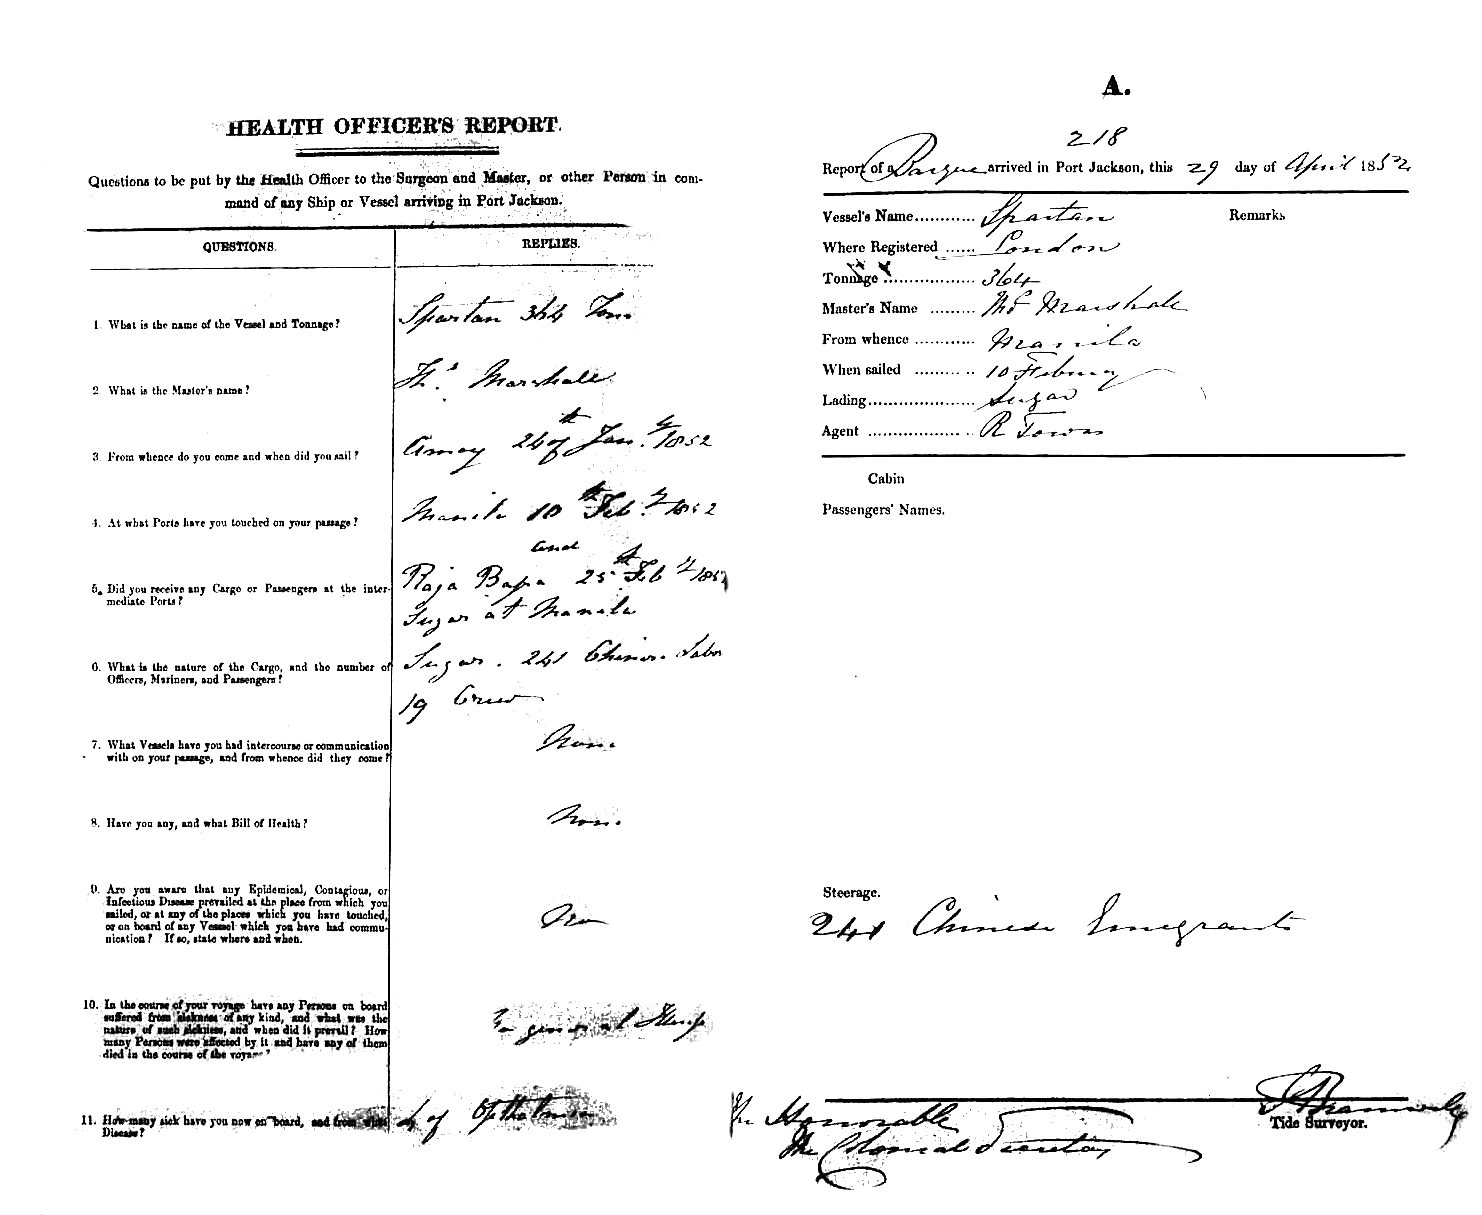 HEALTH OFFICER'S REPORT.
Questions to be put by the Health Officer to the Surgeon and Master, or other Person in com-
mand of any Ship or Vessel arriving in Port Jackson.
QUESTIONS. REPLIES.
1. What is the name of the Vessel and Tonnage? Spartan 364 Tons
2. What is the Master's name? Thos. Marshall
3. From whence do you come and when did you sail? Amoy 24th of Jany. 1852
4. At what Ports have you touched on your passage? Manila 10th Feby. 1852
and
5. Did you receive any Cargo or Passengers at the inter-
mediate Ports?
Raja Bapa 25th Feby 1852
Sugar at Manila
6. What is the nature of the Cargo, and the number of
Officers, Mariners, and Passengers?
Sugar. 241 Chinese Labor
19 Crew
7. What Vessels have you had intercourse or communication
with on your passage, and from whence did they come?
None
8. Have you any, and what Bill of Health?
None
9. Are you aware that any Epidemical, Contagious, or
Infectious Disease prevailed at the place from which you
sailed, or at any of the places which you have touched,
or on board of any Vessel which you have had commu-
nication? If so, state where and when.
No
10. In the course of your voyage have any Persons on board
suffered from sickness of any kind, and what was the
nature of such sickness, and when did it prevail? How
many Persons were affected by it and have any of them
died in the course of the voyage?
general
11. How many sick have you now on board, and from what
Disease?
of Opthalmia
A.
218
Report of a Barque arrived in Port Jackson, this 29 day of April 1852
Vessel's Name............ Spartan Remarks
Where Registered ...... London
Tonnage .................. 364
Master's Name ......... Thos Marshall
From whence ............ Manila
When sailed ........... 10 February
Lading..................... Sugar
Agent .................... R Towns
Cabin
Passengers' Names.
Steerage.
241 Chinese Emigrants
Tide Surveyor.
The Honorable
The Colonial Secretary